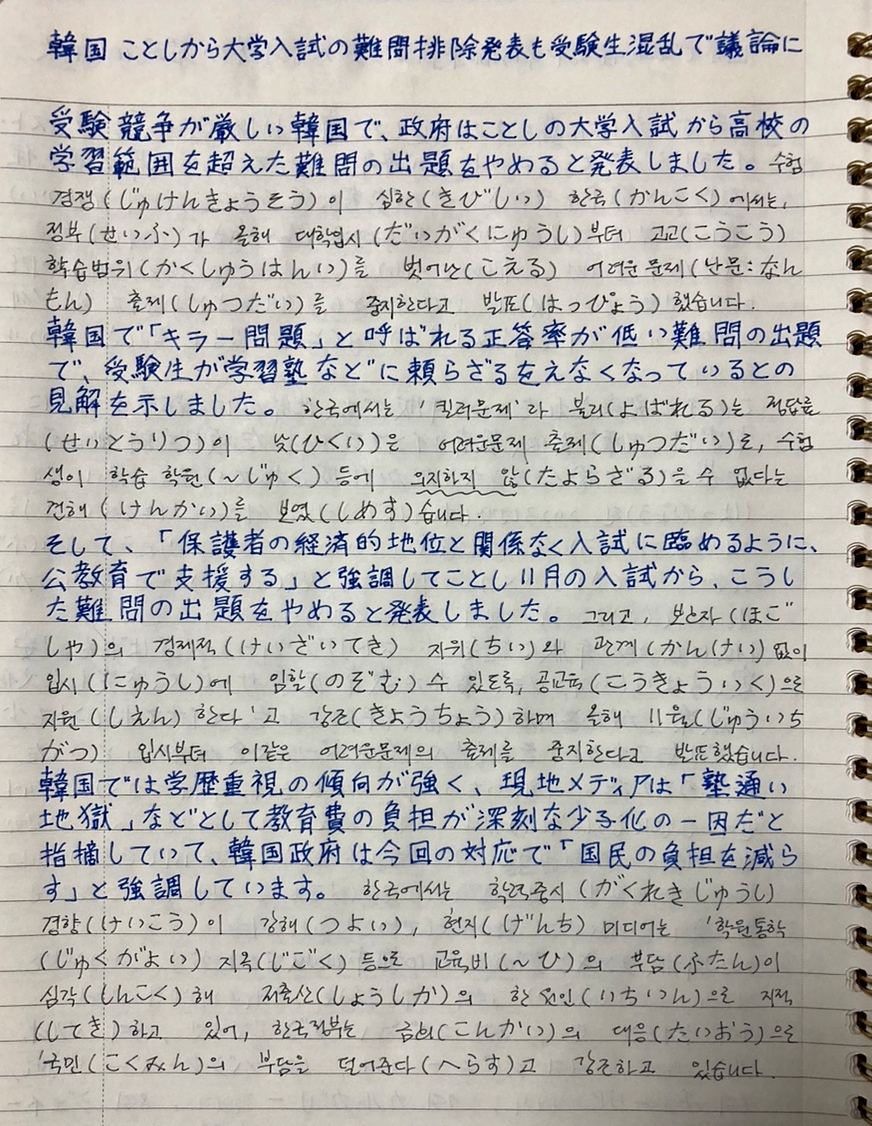 韓国 ことしから大学入試の難問排除発表も受験生混乱で議論に
受験競争が厳しい韓国で、政府はことしの大学入試から高校の
学習範囲を超えた難問の出題をやめると発表しました。수험
경쟁(じゅけんきょうそう)이 심한(きびしい) 한국(かんこく)에서는,
정부(せいふ)가 올해 대학입시(だいがくにゅうし)부터 고교(こうこう)
학습범위(がくしゅうはんい)를 벗어난(こえる) 어려운 문제(난문:なん
もん) 출제(しゅつだい)를 중지한다고 발표(はっぴょう)했습니다.
韓国で「キラー問題」と呼ばれる正答率が低い難問の出題
で、受験生が学習塾などに頼らざるをえなくなっているとの
見解を示しました。한국에서는 '킬러문제'라 불리(よばれる)는 정답률
(せいとうりつ)이 낮(ひくい)은 어려운문제 출제(しゅつだい)로, 수험
생이 학습 학원(~じゅく) 등에 의지하지 않(たよらざる)을 수 없다는
견해(けんかい)를 보였(しめす)습니다.
そして、「保護者の経済的地位と関係なく入試に臨めるように、
公教育で支援する」と強調してことし11月の入試から、こうし
た難問の出題をやめると発表しました。그리고, 보호자(ほご
しゃ)의 경제적(けいざいてき) 지위(ちい)와 관계(かんけい)없이
입시(にゅうし)에 임할(のぞむ) 수 있도록, 공교육(こうきょういく)으로
지원(しえん)한다'고 강조(きょうちょう)하며 올해 11월(じゅういち
がつ) 입시부터 이같은 어려운문제의 출제를 중지한다고 발표했습니다.
韓国では学歴重視の傾向が強く、現地メディアは「塾通い
地獄」などとして教育費の負担が深刻な少子化の一因だと
指摘していて、韓国政府は今回の対応で「国民の負担を減ら
す」と強調しています。한국에서는 학력중시(がくれきじゅうし)
경향(けいこう)이 강해(つよい), 현지(げんち) 미디어는 '학원통학
(じゅくがよい) 지옥(じごく) 등으로 교육비(~ひ)의 부담(ふたん)이
심각(しんこく)해 저출산(しょうしか)의 한 원인(いちいん)으로 지적
(してき)하고 있어, 한국정부는 금회(こんかい)의 대응(たいおう)으로
'국민(こくみん)의 부담을 덜어준다(へらす)고 강조하고 있습니다.